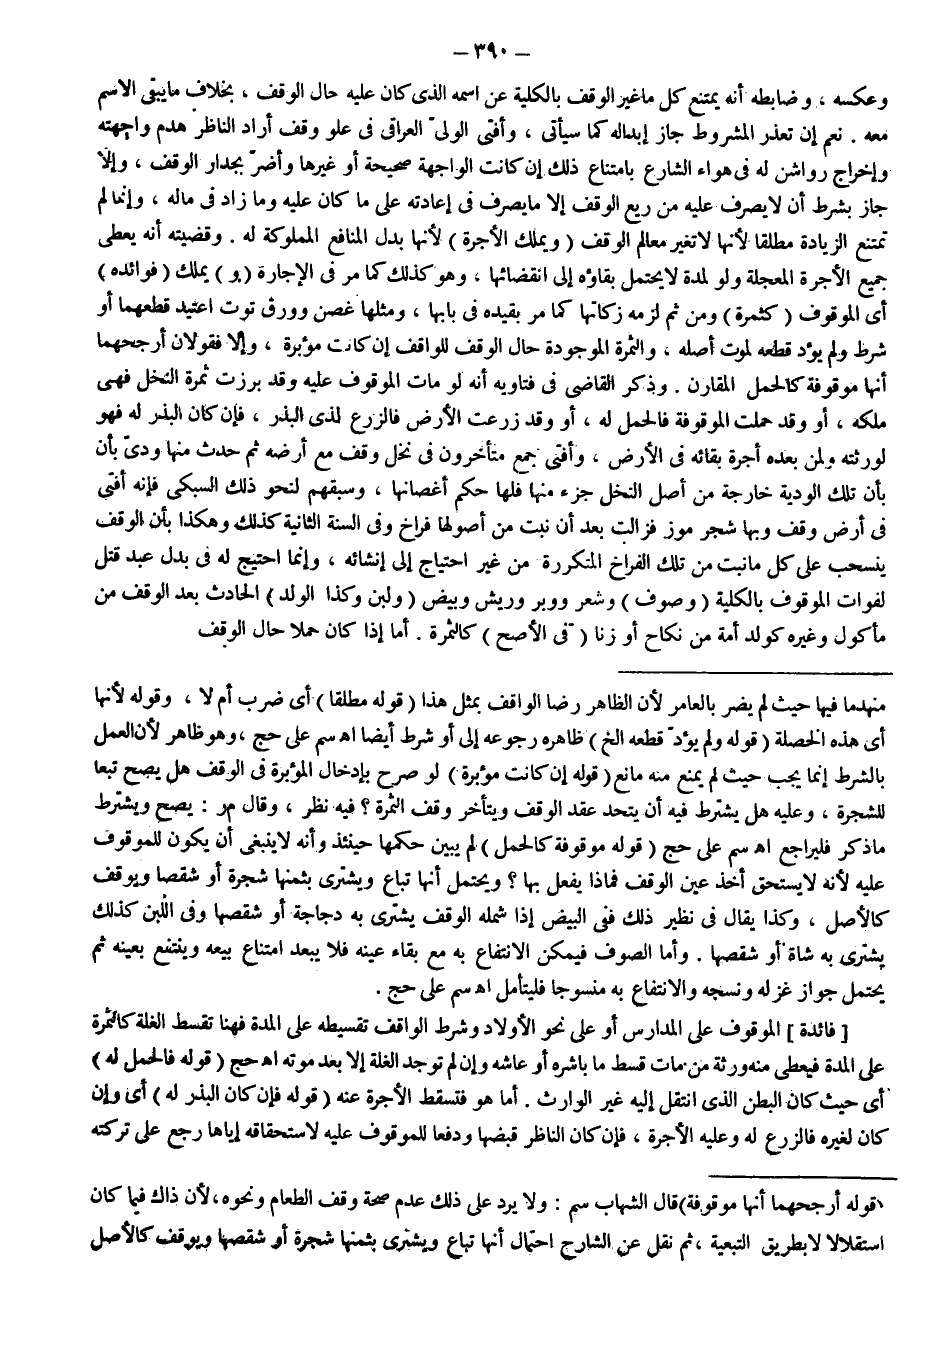 – ٣٩٠ –
وعكسه ، وضابطه أنه يمتنع كل ماغير الوقف بالكلية عن اسمه الذى كان عليه حال الوقف ، بخلاف مايبقى الاسم
معه . نعم إن تعذر المشروط جاز إبداله كما سيأتى ، وأفتى الولىّ العراقى فى علو وقف أراد الناظر هدم واجهته
وإخراج رواشن له فى هواء الشارع بامتناع ذلك إن كانت الواجهة صحيحة أو غيرها وأضرّ بجدار الوقف ، وإلا
جاز بشرط أن لايصرف عليه من ريع الوقف إلا مايصرف فى إعادته على ما كان عليه وما زاد فى ماله ، وإنما لم
تمتنع الزيادة مطلقا لأنها لاتغير معالم الوقف ( ويملك الأجرة ) لأنها بدل المنافع المملوكة له . وقضيته أنه يعطى
جميع الأجرة المعجلة ولو لمدة لايحتمل بقاؤه إلى انقضائها ، وهو كذلك كما مر فى الإجارة (و) يملك ( فوائده )
أى الموقوف ( كثمرة ) ومن ثم لزمه زكاتها كما مر بقيده فى بابها ، ومثلها غصن وورق توت اعتيد قطعهما أو
شرط ولم يؤد قطعه لموت أصله ، والثمرة الموجودة حال الوقف للواقف إن كانت مؤبرة ، وإلا فقولان أرجحهما
أنها موقوفة كالحمل المقارن . وذكر القاضى فى فتاويه أنه لو مات الموقوف عليه وقد برزت ثمرة النخل فهى
ملكه ، أو وقد حملت الموقوفة فالحمل له ، أو وقد زرعت الأرض فالزرع لذى البذر ، فإن كان البذر له فهو
لورثته ولمن بعده أجرة بقائه فى الأرض ، وأفتى جمع متأخرون فى نخل وقف مع أرضه ثم حدث منها ودىّ بأن
بأن تلك الودية خارجة من أصل النخل جزء منها فلها حكم أغصانها ، وسبقهم لنحو ذلك السبكى فإنه أفتى
فى أرض وقف وبها شجر موز فزالت بعد أن نبت من أصولها فراخ وفى السنة الثانية كذلك وهكذا بأن الوقف
ينسحب على كل مانبت من تلك الفراخ المتكررة من غير احتياج إلى إنشائه ، وإنما احتيج له فى بدل عبد قتل
لفوات الموقوف بالكلية ( وصوف ) وشعر ووبر وريش وبيض ( ولبن وكذا الولد ) الحادث بعد الوقف من
مأكول وغيره كولد أمة من نكاح أو زنا ( فى الأصح ) كالثمرة . أما إذا كان حملا حال الوقف
منهدما فيها حيث لم يضر بالعامر لأن الظاهر رضا الواقف بمثل هذا ( قوله مطلقا ) أى ضرب أم لا ، وقوله لأنها
أى هذه الخصلة ( قوله ولم يؤد قطعه الخ ) ظاهره رجوعه إلى أو شرط أيضا اه سم على حج ، وهو ظاهر لأن العمل
بالشرط إنما يجب حيث لم يمنع منه مانع ( قوله إن كانت مؤبرة ) لو صرح بإدخال المؤبرة فى الوقف هل يصح تبعا
للشجرة ، وعليه هل يشترط فيه أن يتحد عقد الوقف ويتأخر وقف الثمرة ؟ فيه نظر ، وقال مر : يصح ويشترط
ماذكر فليراجع اه سم على حج ( قوله موقوفة كالحمل ) لم يبين حكمها حينئذ وأنه لاينبغى أن يكون للموقوف
عليه لأنه لايستحق أخذ عين الوقف فماذا يفعل بها ؟ ويحتمل أنها تباع ويشترى بثمنها شجرة أو شقصا ويوقف
كالأصل ، وكذا يقال فى نظير ذلك ففى البيض إذا شمله الوقف يشترى به دجاجة أو شقصها وفى اللبن كذلك
يشترى به شاة أو شقصها . وأما الصوف فيمكن الانتفاع به مع بقاء عينه فلا يبعد امتناع بيعه وينتفع بعينه ثم
يحتمل جواز غزله ونسجه والانتفاع به منسوجا فليتأمل اه سم على حج .
[ فائدة ] الموقوف على المدارس أو على نحو الأولاد وشرط الواقف تقسيطه على المدة فهنا تقسط الغلة كالثمرة
على المدة فيعطى منه ورثة من مات قسط ما باشره أو عاشه وإن لم توجد الغلة إلا بعد موته اه حج ( قوله فالحمل له )
أى حيث كان البطن الذى انتقل إليه غير الوارث . أما هو فتسقط الأجرة عنه ( قوله فإن كان البذر له ) أى وإن
كان لغيره فالزرع له وعليه الأجرة ، فإن كان الناظر قبضها ودفعا للموقوف عليه لاستحقاقه إياها رجع على تركته
(قوله أرجحهما أنها موقوفة) قال الشهاب سم : ولا يرد على ذلك عدم صحة وقف الطعام ونحوه ، لأن ذاك فيما كان
استقلالا لابطريق التبعية ، ثم نقل عن الشارح احتمال أنها تباع ويشترى بثمنها شجرة أو شقصها ويوقف كالأصل